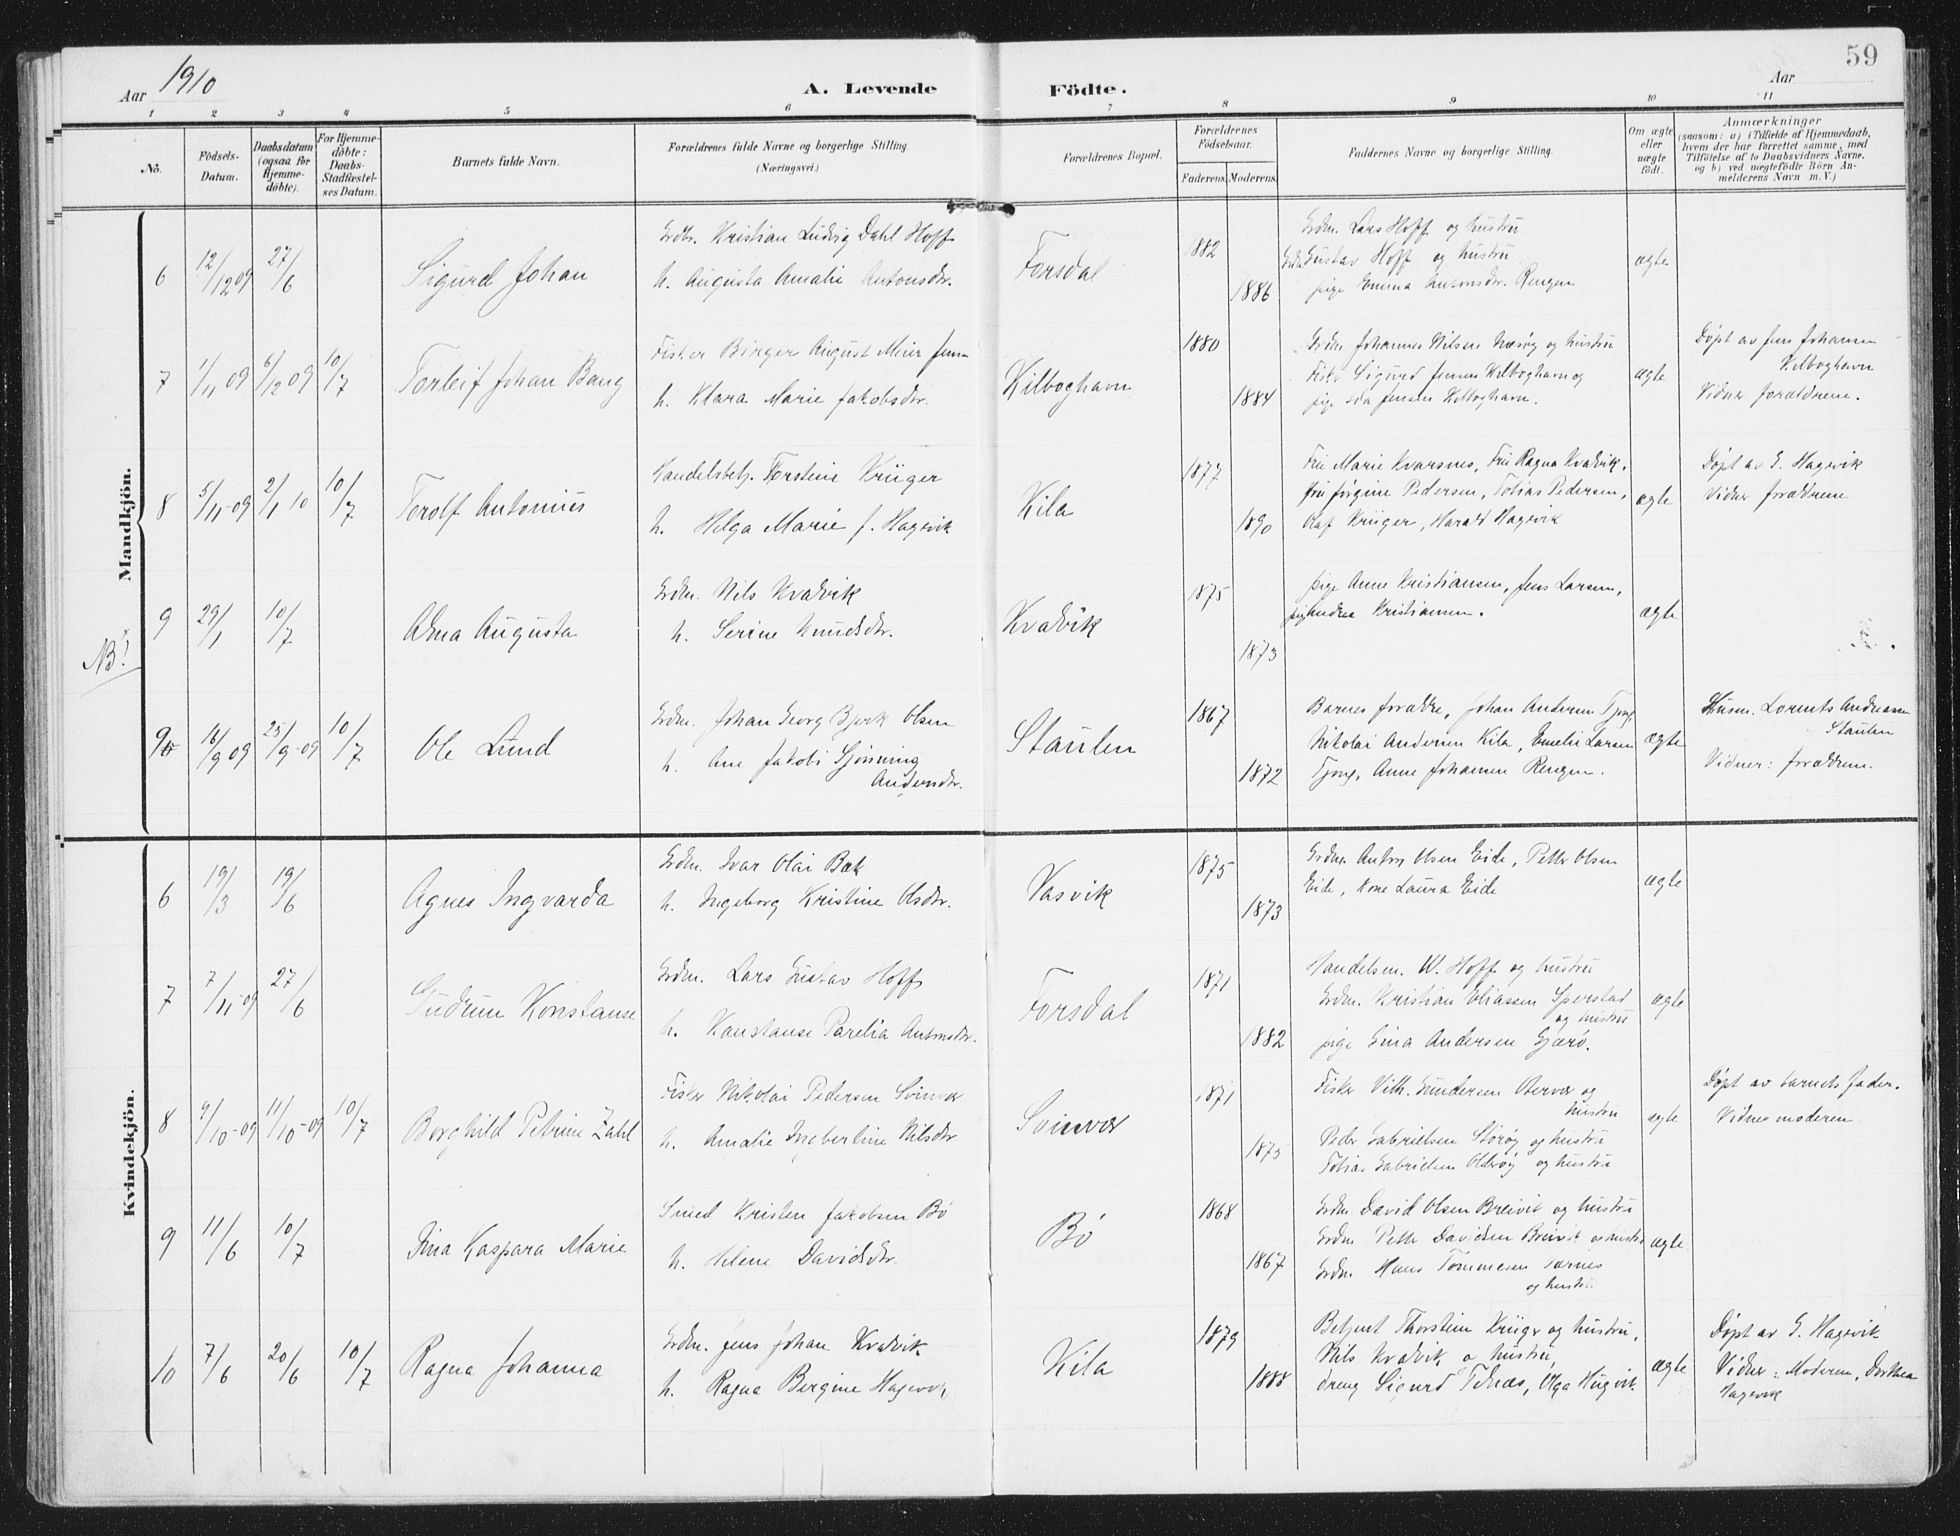 59
Aar 1910
A. Levende Födte.
Aar
1 2 3 4 5 6 7 8 9 10 11
No.
Födsels-Datum.
Daabsdatum (ogsaa for Hjemme-döbte).
For Hjemme-döbte: Daabs-Stadfæstel-ses Datum.
Barnets fulde Navn.
Forældrenes fulde Navne og borgerlige Stilling.
(Næringsvei.)
Forældrenes Bopæl.
Forældrenes Födselsaar.
Faderens. Moderens.
Faddernes Navne og borgerlige Stilling.
Om ægte eller uægte födt.
Anmærkninger
(saasom: a) i Tilfælde af Hjemmedaab,
hvem der har forrettet samme, med
Tilföielse af to Daabsvidners Navne,
og b) ved uægtefödte Börn An-
melderens Navn m. V.)
Mandkjön.
6 12/12 09 27/6 Sigurd Johan
Kristian Ludvig Dahl Hoff
h. Augusta Amalie Antonsdtr.
Forsdal
882
1886
Grdm. Lars Hoff og hustru
Gustav Hoff og hustru
pige Emma Antonsdtr. Rengen
ægte
7 1/11 09 6/12 09 10/7 Torleif Johan Bang
Fisker Birger August Meier Jensen
h. Klara Marie Jakobsdtr.
Kilboghavn
1880
1884
Grdm. Johannes Nilsen Næsøy og hustru
Fisker Sigurd Jensen Kilboghavn og
pige Ida Jensen Kilboghavn.
ægte
Døpt av Jens Johansen
Kilboghavn
Vidner forældrene.
8 5/11-09 2/1 10 10/7 Torolf Antonius
Handelsbetj. Torstein Krüger
h. Helga Marie f. Hagevik
Kila
1877
1890
Fru Marie Kvarsnes, Fru Ragna Kvadvik,
fru Jørgine Pedersen, Tobias Pedersen,
Olaf Krüger, Harald Hagevik
ægte
Døpt av E. Hagevik
Vidner forældrene
NB!
9 29/1 10/7 Alma Augusta
Grdm. Nils Kvadvik
h. Serine Knudsdtr.
Kvadvik
1875
1873
pige Anne Kristiansen, Jens Larsen,
pige Andrea Kristiansen.
ægte
9 16/9 09 25/9-09 10/7 Ole Lund
Grdm. Johan Georg Bjerk Olsen
h. Ane Jakobi Sjønning
Andersdtr.
Staulen
1867
1872
Barnes forældre, Johan Andersen Tjong,
Nikolai Andersen Kila, Emelie Larsen
Tjong, Anne Johansen Rengen.
ægte
Husm. Lorents Andreasen
Staulen
Vidner: forældrene.
Kvindekjön.
6 19/3 19/6 Agnes Ingvarda
Grdm. Ivar Olai Bæk
h. Ingeborg Kristine Olsdtr.
Vasvik
1875
1873
Grdm. Anton Olsen Eide, Petter Olsen
Eide, kone Laura Eide
ægte
7 7/11-09 27/6 Gudrun Konstanse
Grdm. Lars Gustav Hoff
h. Konstanse Parelia Antonsdtr.
Forsdal
1871
1882
Handelsm. K. Hoff og hustru
Grdm. Kristian Eliassen Sperstad
og hustru
pige Gina Andersen Gjærø.
ægte
8 9/10-09 11/10-09 10/7 Borghild Petrine Zahl
Fisker Nikolai Pedersen Svinvær
h. Amalie Ingbertine Nilsdtr
Svinvær
1871
1875
Fisker Vilh. Gundersen Otervær og
hustru
Peder Gabrielsen Storøy og hustru
Tobias Gabrielsen Olderøy og hustru
ægte
Døpt av barnets fader.
Vidner moderen.
9 11/6 10/7 Dina Kaspara Marie
Smed Kristen Jakobsen Bø
h. Helene Davidsdtr.
Bø
1868
1867
Grdm David Olsen Breivik og hustru
Grdm Petter Davidsen Breivik og hustru
Grdm Hans Tommesen
og hustru
ægte
10 7/6 20/6 10/7 Ragna Johanna
Grdm. Jens Johan Kvadvik
h. Ragna Bergine Hagevik
Kila
1879
1888
Betjent Thorstein Krüger og hustru,
Nils Kvadvik o hustru,
dreng Sigurd Teknæs, Olga Hagvik.
ægte
Døpt av E. Hagevik
Vidner: Moderen, Dorthea
Hagevik